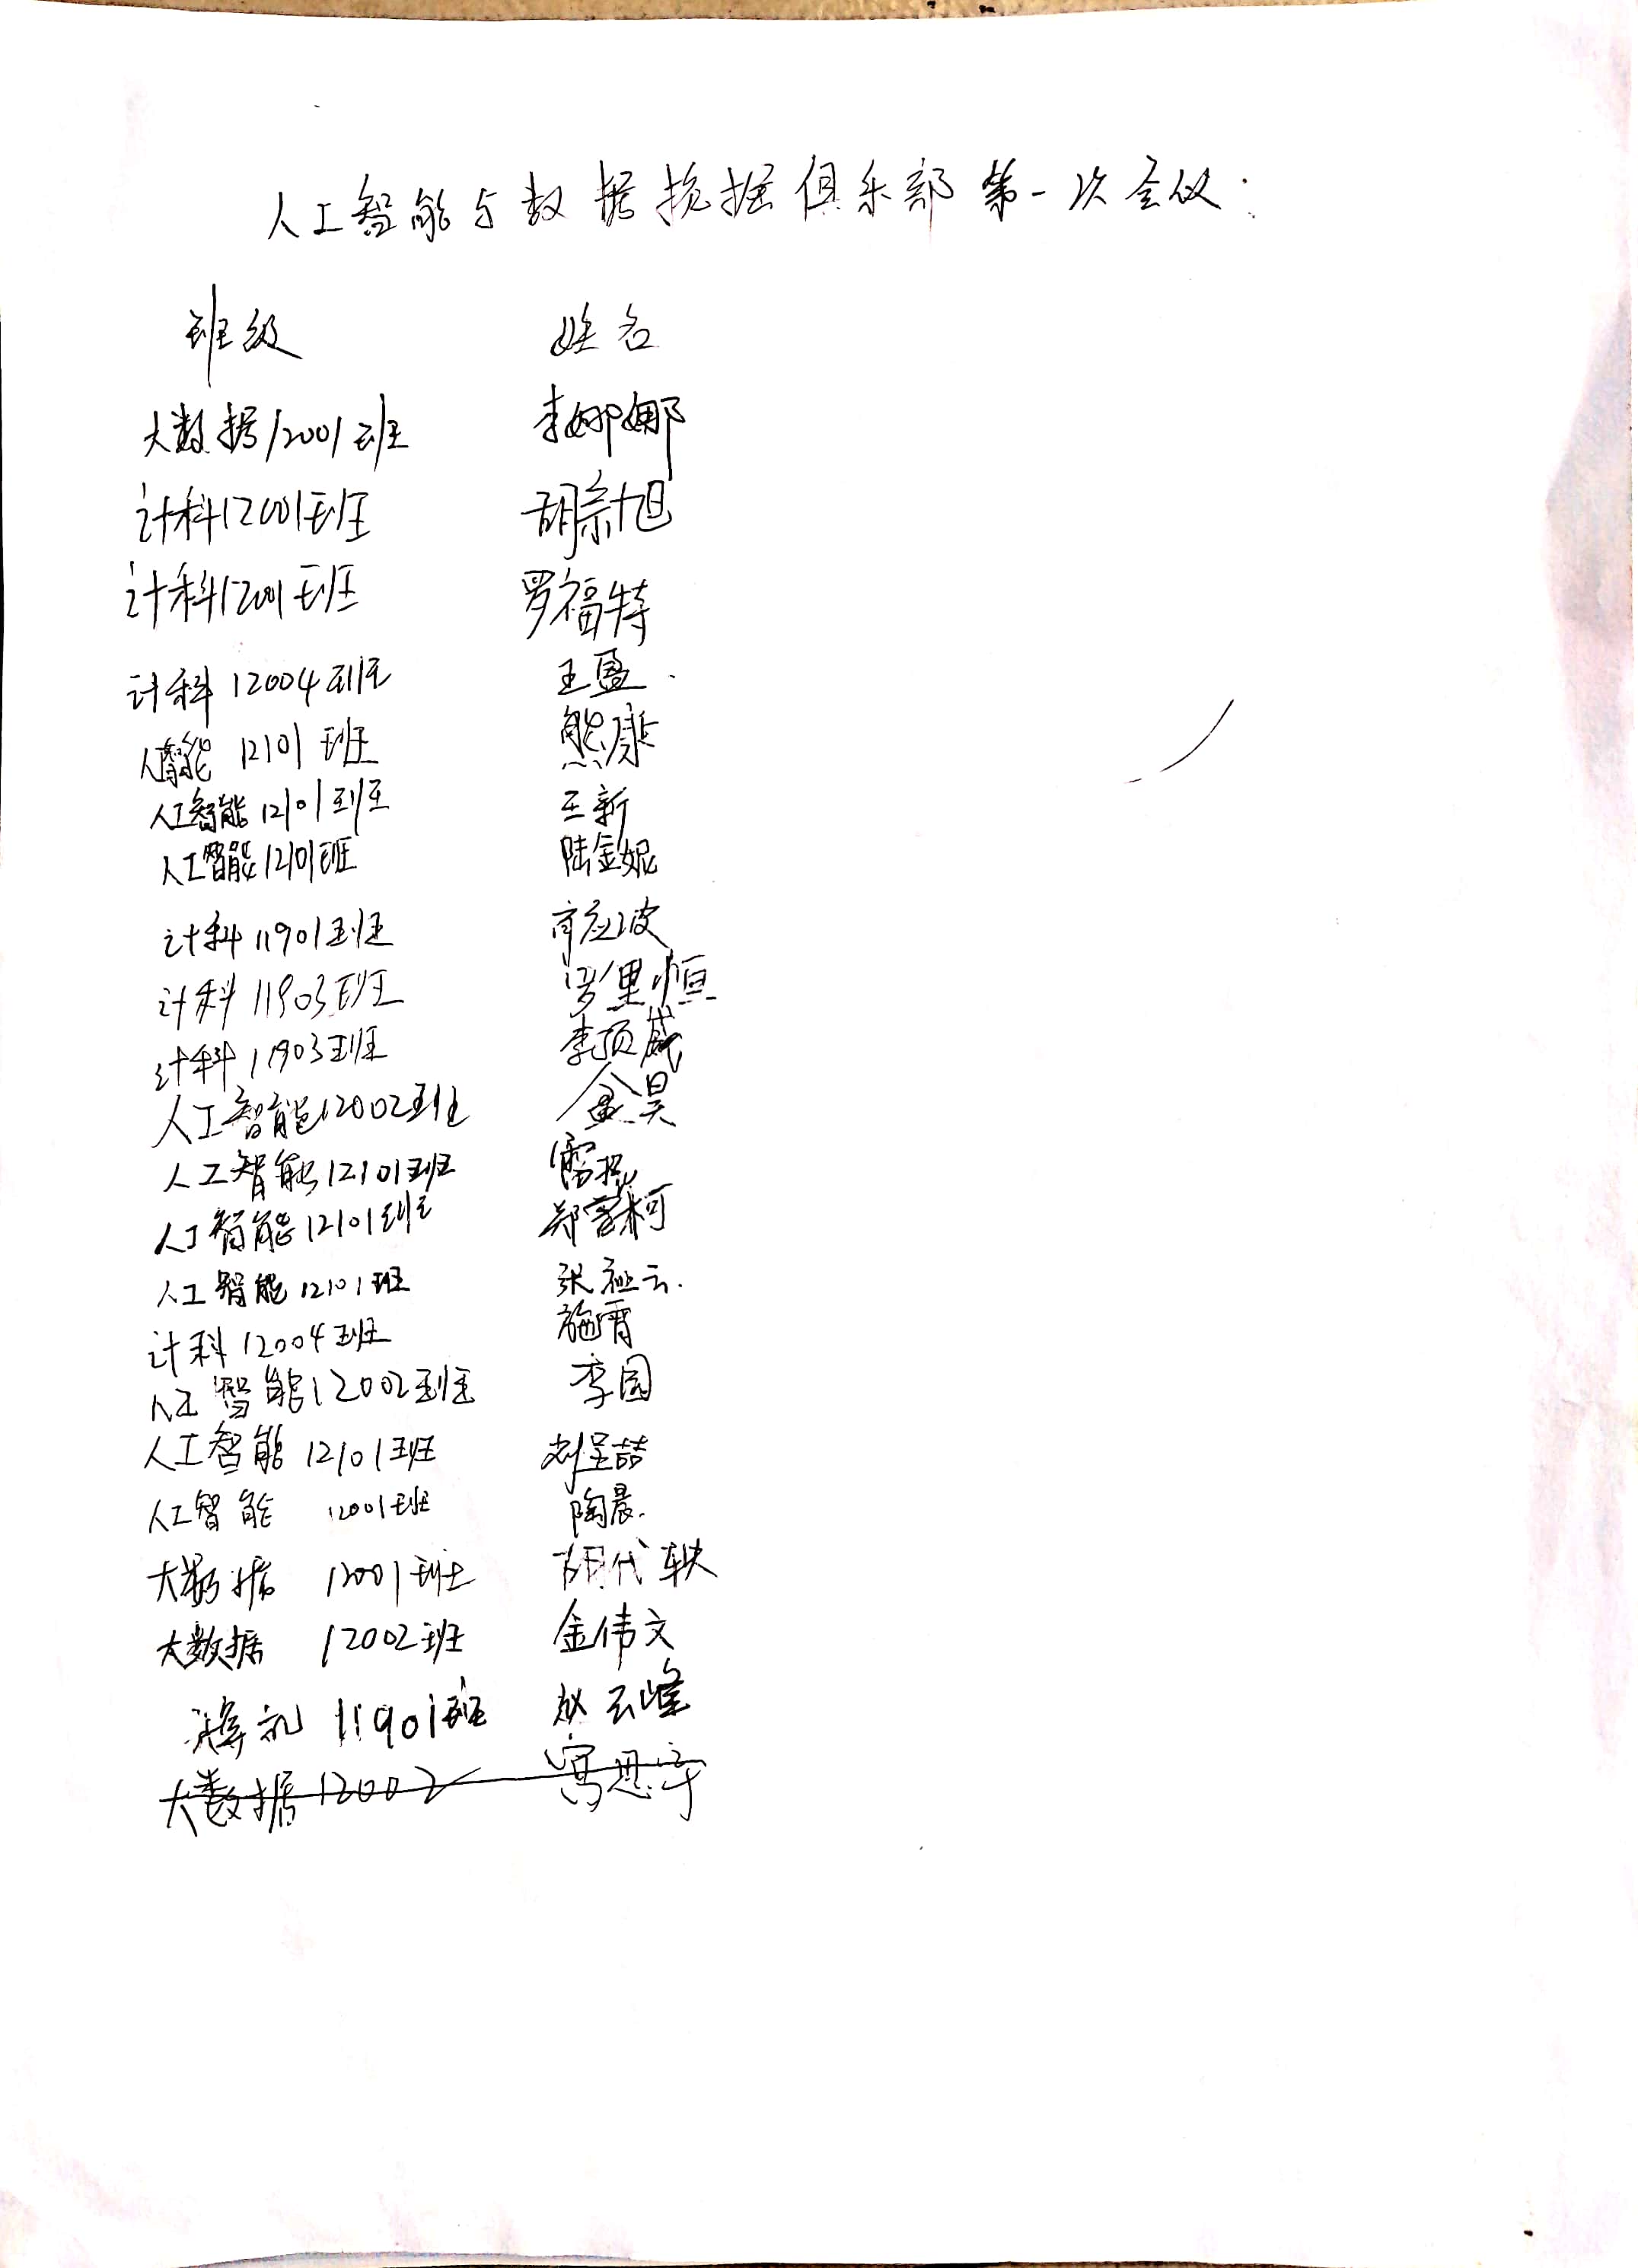 人工智能与数据挖掘俱乐部第一次会议:
班级 姓名
大数据12001班 李娜娜
计科12001班 胡宗旭
计科12001班 罗福特
计科12004班 王盈
智能 12101班 熊康
人工智能12101班 王新
人工智能12101班 陆金妮
计科11901班
计科11903班 罗里恒
计科11903班 李顶威
人工智能12002班 金昊
人工智能12101班
人工智能12101班 郑柯
人工智能12101班 张祖云.
计科12004班 施霄
人工智能12002班 李园
人工智能 12101班 刘呈喆
人工智能 12001班 陶晨.
大数据 12001班 胡代轶
大数据 12002班 金伟文
11901班 赵云峰
大数据12002